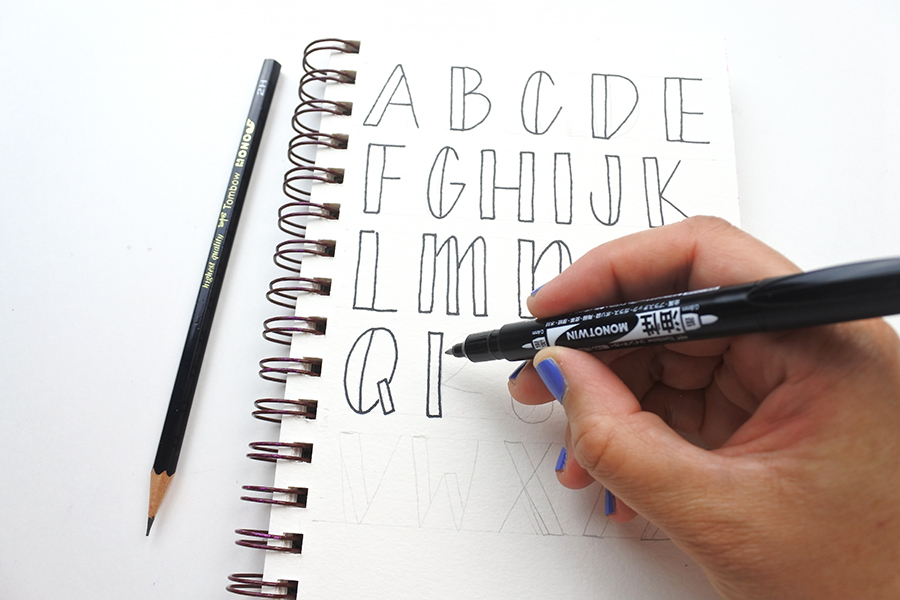 A B C D E
F G H I J K
L m n
Q I
V W X
highest quality Tombow MONO 2H
MONOTWIN 油性